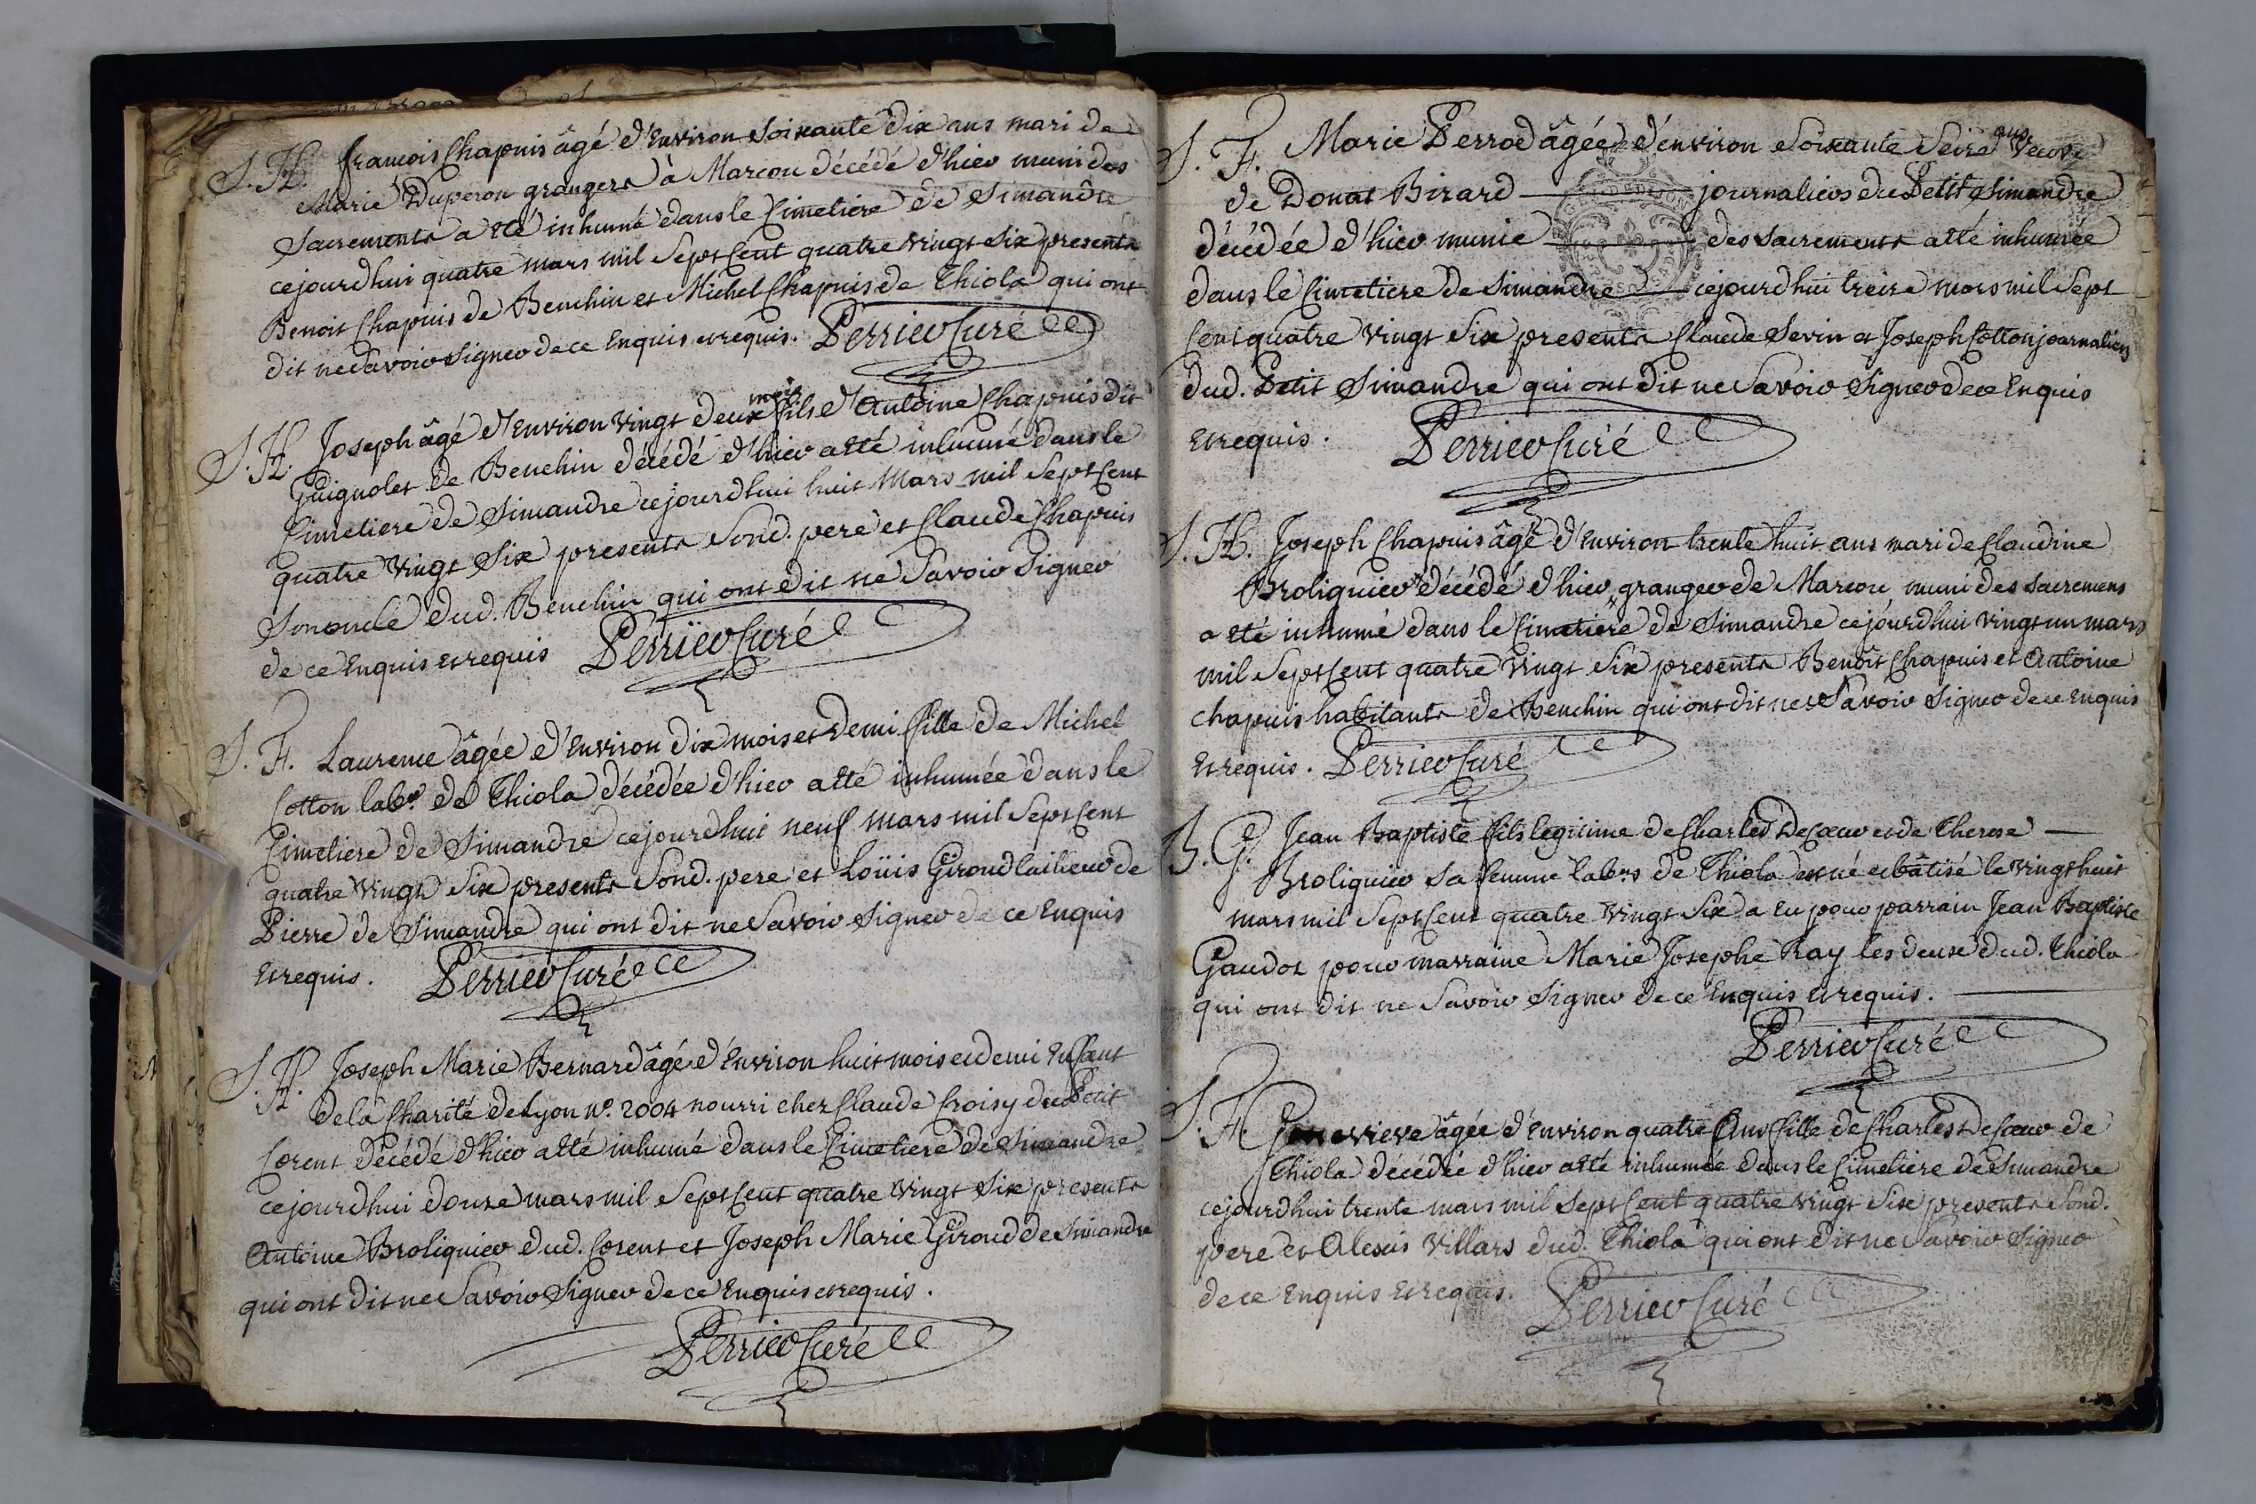 S. H. francois Chapuis âgé d'Environ Soixante Dix ans mari de
Marie Duperon grangers à Marcou décédé d'hier muni des
Sacrements a eté inhumé dans le Cimetiere de Simandre
cejourdhui quatre mars mil Sept Cent quatre vingt Six presents
Benoit Chapuis de Benchin et Michel Chapuis de Thiola qui ont
dit ne Savoir Signer de ce Enquis et requis. Perrier Curé
mois
S. H. Joseph âgé d'Environ vingt deux fils d'Antoine Chapuis dit
Guignolet de Benchin décédé d'hier a eté inhumé dans le
Cimetiere de Simandre cejourdhui huit Mars mil Sept Cent
quatre vingt Six presents Sond. pere et Claude Chapuis
Son oncle dud. Benchin qui ont dit ne Savoir Signer
de ce Enquis et requis Perrier Curé
S. F. Laurence âgée d'Environ dix mois et Demi fille de Michel
Cotton labr. de Thiola décédée d'hier a eté inhumée dans le
Cimetiere de Simandre cejourdhui neuf mars mil Sept Cent
quatre vingt Six presents Sond. pere et Loüis Giroud tailleur de
Pierre de Simandre qui ont dit ne Savoir Signer de ce Enquis
et requis. Perrier Curé
S. H. Joseph Marie Bernard âgé d'Environ huit mois et demi Enfant
de la Charité de Lyon n°. 2004 nourri chez Claude Croisy du Petit
Corent décédé d'hier a eté inhumé dans le Cimetiere de Simandre
cejourdhui douze mars mil Sept Cent quatre vingt Six presents
Antoine Broliquier dud. Corent et Joseph Marie Giroud de Simandre
qui ont dit ne Savoir Signer de ce Enquis et requis.
Perrier Curé
ans
S. F. Marie Perrod âgée d'environ Soixante Seize Veuve
de Donat Birard journaliers du Petit Simandre
décédée d'hier munie des Sacrements a eté inhumée
dans le Cimetiere de Simandre cejourdhui treize mars mil Sept
Cent quatre vingt Six presents Claude Sevin et Joseph Cotton journaliers
dud. Petit Simandre qui ont dit ne Savoir Signer de ce Enquis
et requis. Perrier Curé
S. H. Joseph Chapuis âgé d'Environ trente huit ans mari de Claudine
Broliquier décédé d'hier granger de Marcou muni des Sacremens
a eté inhumé dans le Cimetiere de Simandre cejourdhui vingt un mars
mil Sept Cent quatre vingt Six presents Benoît Chapuis et Antoine
Chapuis habitants de Benchin qui ont dit ne Savoir Signer de ce Enquis
et requis. Perrier Curé
B. G. Jean Baptiste fils legitime de Charles DeCœur et de Therese
Broliquier Sa femme labrs de Thiola est né et bâtisé le vingt huit
mars mil Sept Cent quatre vingt Six a Eu pour parrain Jean Baptiste
Gaudot pour marraine Marie Josephe Ray les deux dud. Thiola
qui ont dit ne Savoir Signer de ce Enquis et requis.
Perrier Curé
S. F. Genevieve âgée d'Environ quatre Ans fille de Charles DeCœur de
Thiola décédée d'hier a eté inhumée dans le Cimetiere de Simandre
cejourdhui trente mars mil Sept Cent quatre vingt Six presents Sond.
pere et Alexis Villars dud. Thiola qui ont dit ne Savoir Signer
de ce Enquis et requis. Perrier Curé